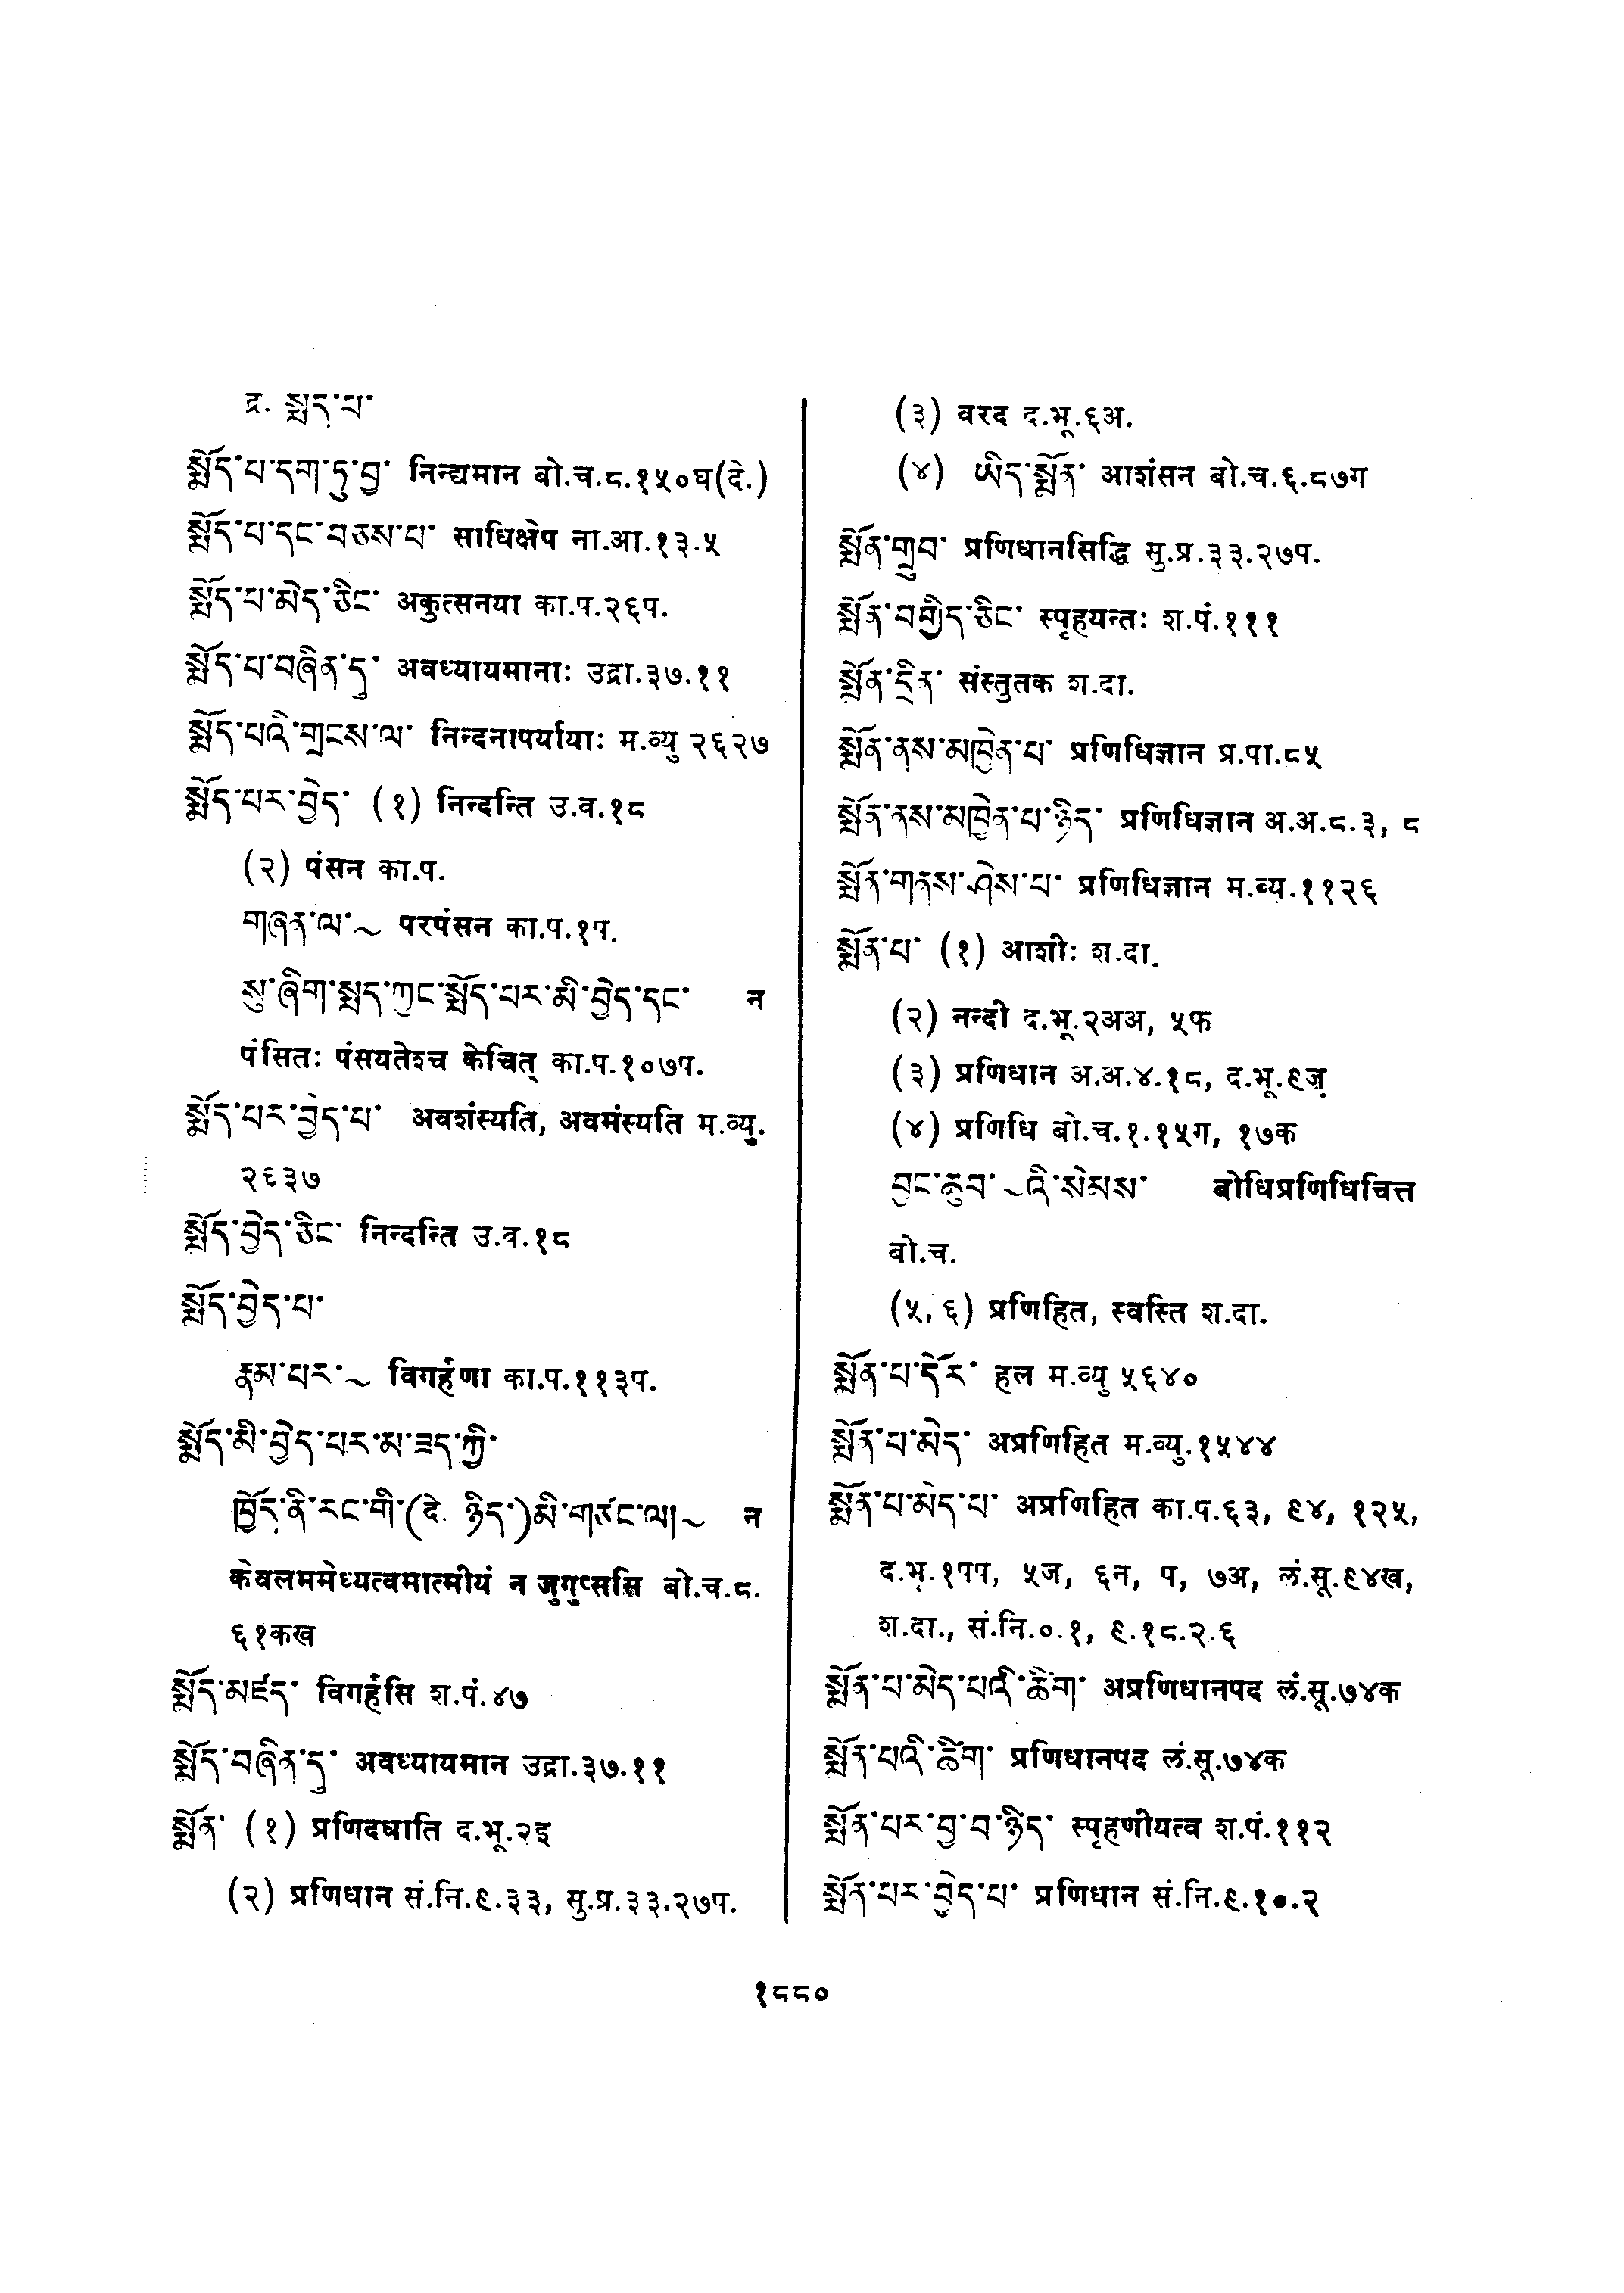 द्र. སྨད་པ་
སྨོད་པ་དག་ཏུ་བྱ་ निन्द्यमान बो.च.८.१५०घ(दे.)
སྨོད་པ་དང་བཅས་པ་ साधिक्षेप ना.आ.१३.५
སྨོད་པ་མེད་ཅིང་ अकुत्सनया का.प.२६प.
སྨོད་པ་བཞིན་དུ་ अवध्यायमानाः उद्रा.३७.११
སྨོད་པའི་གྲངས་ལ་ निन्दनापर्यायाः म.व्यु २६२७
སྨོད་པར་བྱེད་ (१) निन्दन्ति उ.व.१८
(२) पंसन का.प.
གཞན་ལ་~ परपंसन का.प.१प.
སུ་ཞིག་སྨད་ཀྱང་སྨོད་པར་མི་བྱེད་དང་ न
पंसितः पंसयतेश्च केचित् का.प.१०७प.
སྨོད་པར་བྱེད་པ་ अवशंस्यति, अवमंस्यति म.व्यु.
२६३७
སྨོད་བྱེད་ཅིང་ निन्दन्ति उ.व.१८
སྨོད་བྱེད་པ་
རྣམ་པར་~ विगर्हणा का.प.११३प.
སྨོད་མི་བྱེད་པར་མ་ཟད་ཀྱི་
ཁྱོད་ནི་རང་གི་(དེ. ཉིད་)མི་གཙང་ལ།~ न
केवलममेध्यत्वमात्मीयं न जुगुप्ससि बो.च.८.
६१कख
སྨོད་མཛད་ विगर्हसि श.पं.४७
སྨོད་བཞིན་དུ་ अवध्यायमान उद्रा.३७.११
སྨོན་ (१) प्रणिदधाति द.भू.२इ
(२) प्रणिधान सं.नि.९.३३, सु.प्र.३३.२७प.
(३) वरद द.भू.६अ.
(४) ཡིད་སྨོན་ आशंसन बो.च.६.८७ग
སྨོན་གྲུབ་ प्रणिधानसिद्धि सु.प्र.३३.२७प.
སྨོན་བགྱིད་ཅིང་ स्पृहयन्तः श.पं.१११
སྨོན་དྲིན་ संस्तुतक श.दा.
སྨོན་ནས་མཁྱེན་པ་ प्रणिधिज्ञान प्र.पा.८५
སྨོན་ནས་མཁྱེན་པ་ཉིད་ प्रणिधिज्ञान अ.अ.८.३, ८
སྨོན་གནས་ཤེས་པ་ प्रणिधिज्ञान म.व्यु.११२६
སྨོན་པ་ (१) आशीः श.दा.
(२) नन्दी द.भू.२अअ, ५फ
(३) प्रणिधान अ.अ.४.१८, द.भू.९ज़
(४) प्रणिधि बो.च.१.१५ग, १७क
བྱང་ཆུབ་~འི་སེམས་ बोधिप्रणिधिचित्त
बो.च.
(५, ६) प्रणिहित, स्वस्ति श.दा.
སྨོན་པ་དོར་ हल म.व्यु ५६४०
སྨོན་པ་མེད་ अप्रणिहित म.व्यु.१५४४
སྨོན་པ་མེད་པ་ अप्रणिहित का.प.६३, ९४, १२५,
द.भू.१पप, ५ज, ६न, प, ७अ, लं.सू.९४ख,
श.दा., सं.नि.०.१, ९.१८.२.६
སྨོན་པ་མེད་པའི་ཚིག་ अप्रणिधानपद लं.सू.७४क
སྨོན་པའི་ཚིག་ प्रणिधानपद लं.सू.७४क
སྨོན་པར་བྱ་བ་ཉིད་ स्पृहणीयत्व श.पं.११२
སྨོན་པར་བྱེད་པ་ प्रणिधान सं.नि.९.१०.२
१८८०